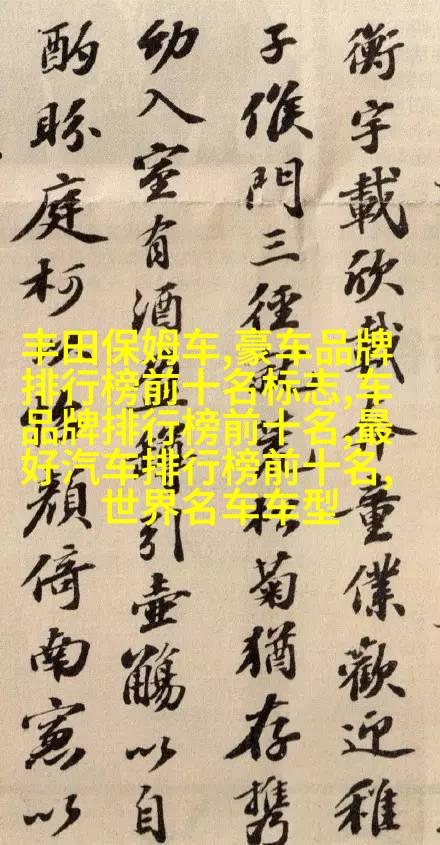 衡宇載欣載奔童僕歡迎稚
子候門三徑松菊猶存携
幼入室有酒盈樽引壺觴以自
酌眄庭柯顏倚南窓以
丰田保姆车,豪车品牌
排行榜前十名标志,车
品牌排行榜前十名,最
好汽车排行榜前十名,
世界名车车型